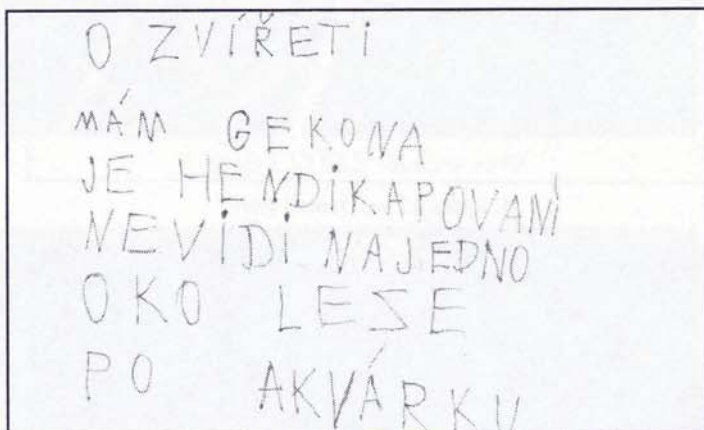 O ZVÍŘETI
MÁM GEKONA
JE HENDIKAPOVANÍ
NEVIDÍ NAJEDNO
OKO LESE
PO AKVÁRKU